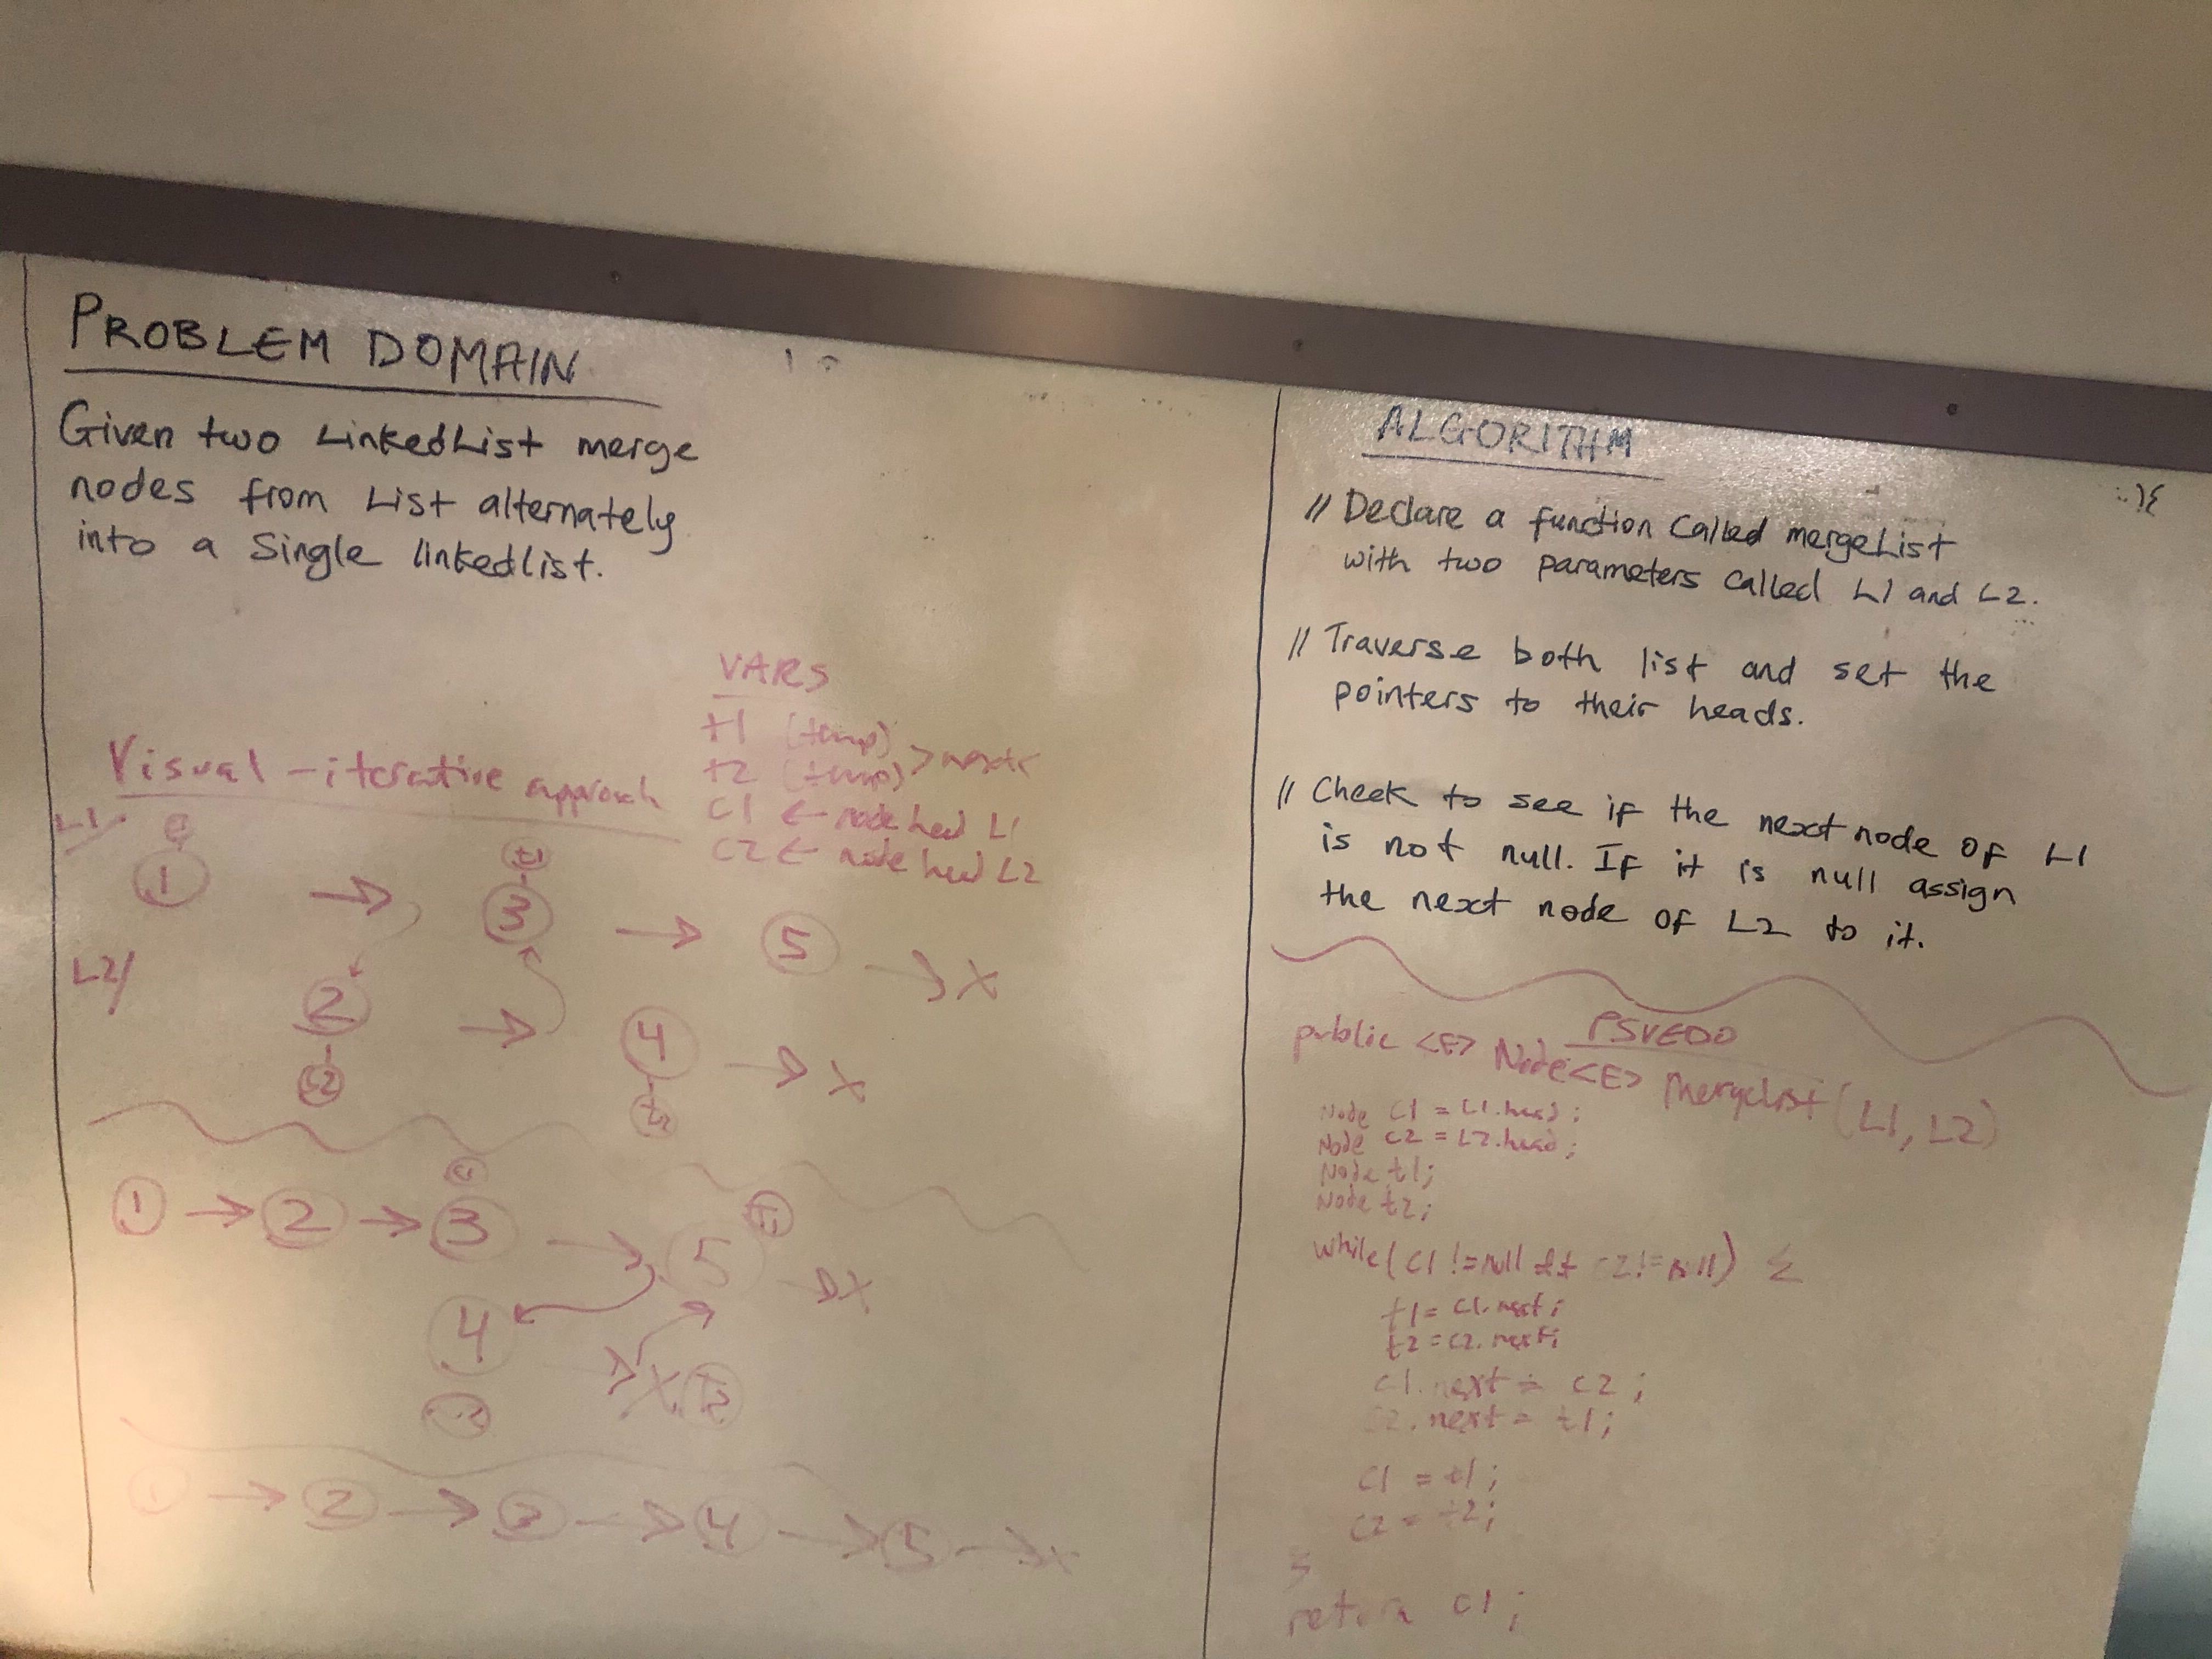 PROBLEM DOMAIN
Given two LinkedList merge
nodes from List alternately
into a Single linkedlist.
VARS
t1 (temp)
t2 (temp) > next
c1 ← node head L1
c2 ← node head L2
Visual - iterative approach
L1
1 → 3 → 5 → X
t1
L2
2 → 4 → X
c2
t2
1 → 2 → 3 → 5 → X
c1
T1
4 → X
T2
1 → 2 → 3 → 4 → 5 → X
ALGORITHM
// Declare a function called mergeList
with two parameters called L1 and L2.
// Traverse both list and set the
pointers to their heads.
// Cheek to see if the next node of L1
is not null. If it is null assign
the next node of L2 to it.
PSVEDO
public <E> Node<E> MergeList (L1, L2)
Node c1 = L1.head;
Node c2 = L2.head;
Node t1;
Node t2;
while(c1 != null && c2 != null) {
t1 = c1.next;
t2 = c2.next;
c1.next = c2;
c2.next = t1;
c1 = t1;
c2 = t2;
}
return c1;